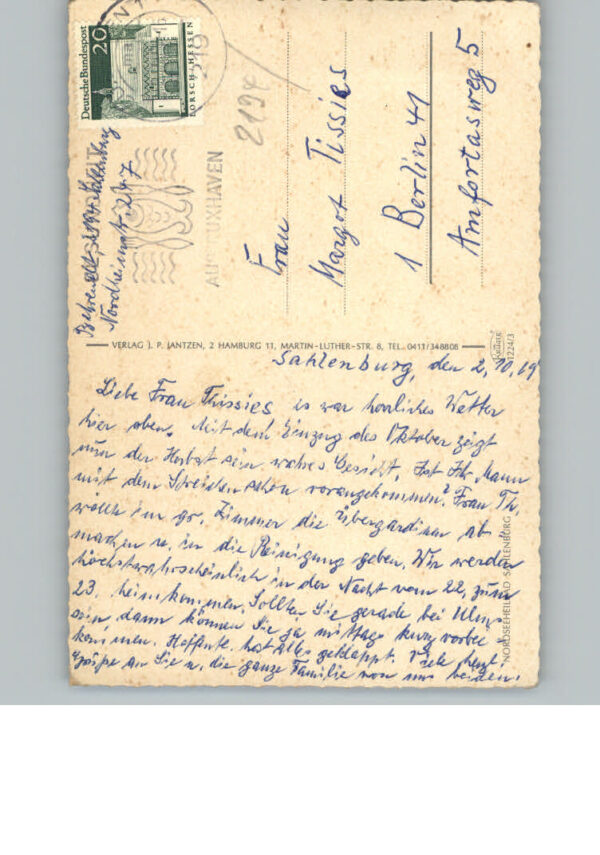 Deutsche Bundespost
20
LORSCH/HESSEN
219
2194
CUXHAVEN
Nordheimstr 247
Frau
Margot Tissies
1 Berlin 41
Amfortasweg 5
VERLAG J. P. JANTZEN, 2 HAMBURG 11, MARTIN-LUTHER-STR. 8, TEL. 0411/348808
1224/3
NORDSEEHEILBAD SAHLENBURG
Sahlenburg, den 2.10.69
Liebe Frau Thissies es war herrliches Wetter
hier oben. Mit dem Einzug des Oktober zeigt
nun der Herbst sein wahres Gesicht. Ist Ihr Mann
mit dem Streichen schon vorangekommen? Frau Th.
wollte im gr. Zimmer die Übergardinen ab
machen u. in die Reinigung geben. Wir werden
höchstwahrscheinlich in der Nacht vom 22. zum
23. heimkommen. Sollten Sie gerade bei
sein, dann können Sie ja mittags kurz vorbei
kommen. Hoffentl. hat alles geklappt. Viele herzl.
Grüße an Sie u. die ganze Familie von uns beiden.